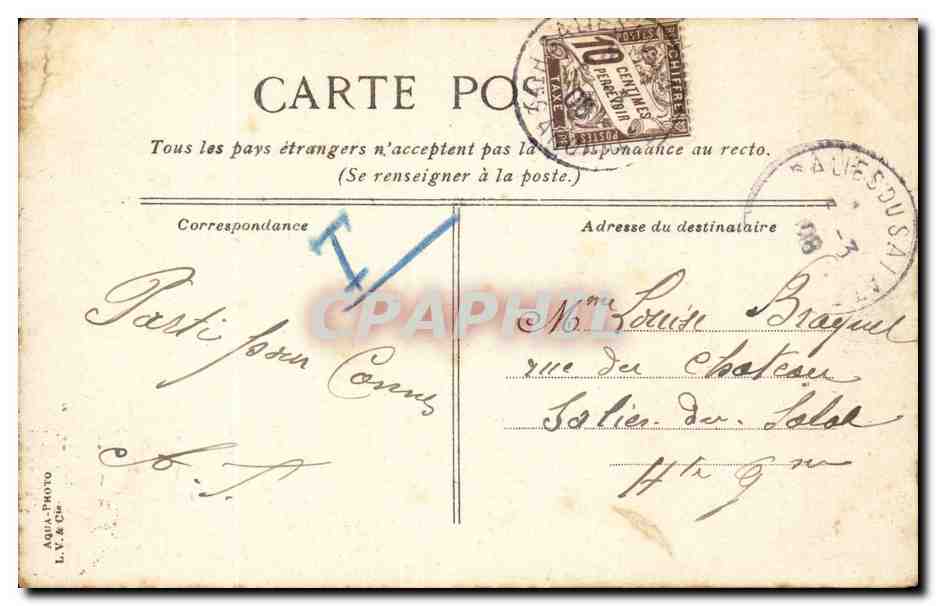 CARTE POS
Tous les pays étrangers n'acceptent pas la pondance au recto.
(Se renseigner à la poste.)
POSTES
CHIFFRE
10 CENTIMES
PERCEVOIR
TAXE
POSTES
08
ALIES DU SALAT
-3
08
Correspondance
Adresse du destinataire
T
CPAPHIL
Parti pour Cannes
A. T.
Mme Louise Braquel
rue du Chateau
Salies-du-Salat
Hte Gne
AQUA-PHOTO
L. V. & Cie